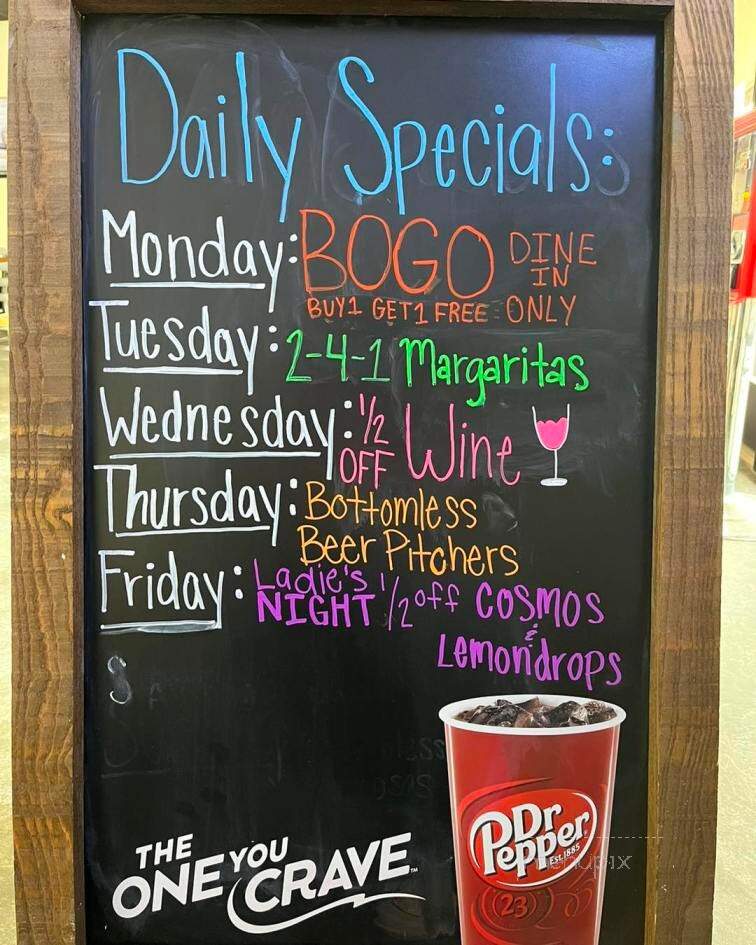 Daily Specials:
Monday: BOGO DINE IN
BUY 1 GET 1 FREE - ONLY
Tuesday: 2-4-1 Margaritas
Wednesday: 1/2 OFF Wine
Thursday: Bottomless
Beer Pitchers
Friday: Ladie's NIGHT 1/2 off Cosmos
&
Lemondrops
THE
ONE YOU
CRAVE™
Dr
Pepper
EST. 1885
23
menupix